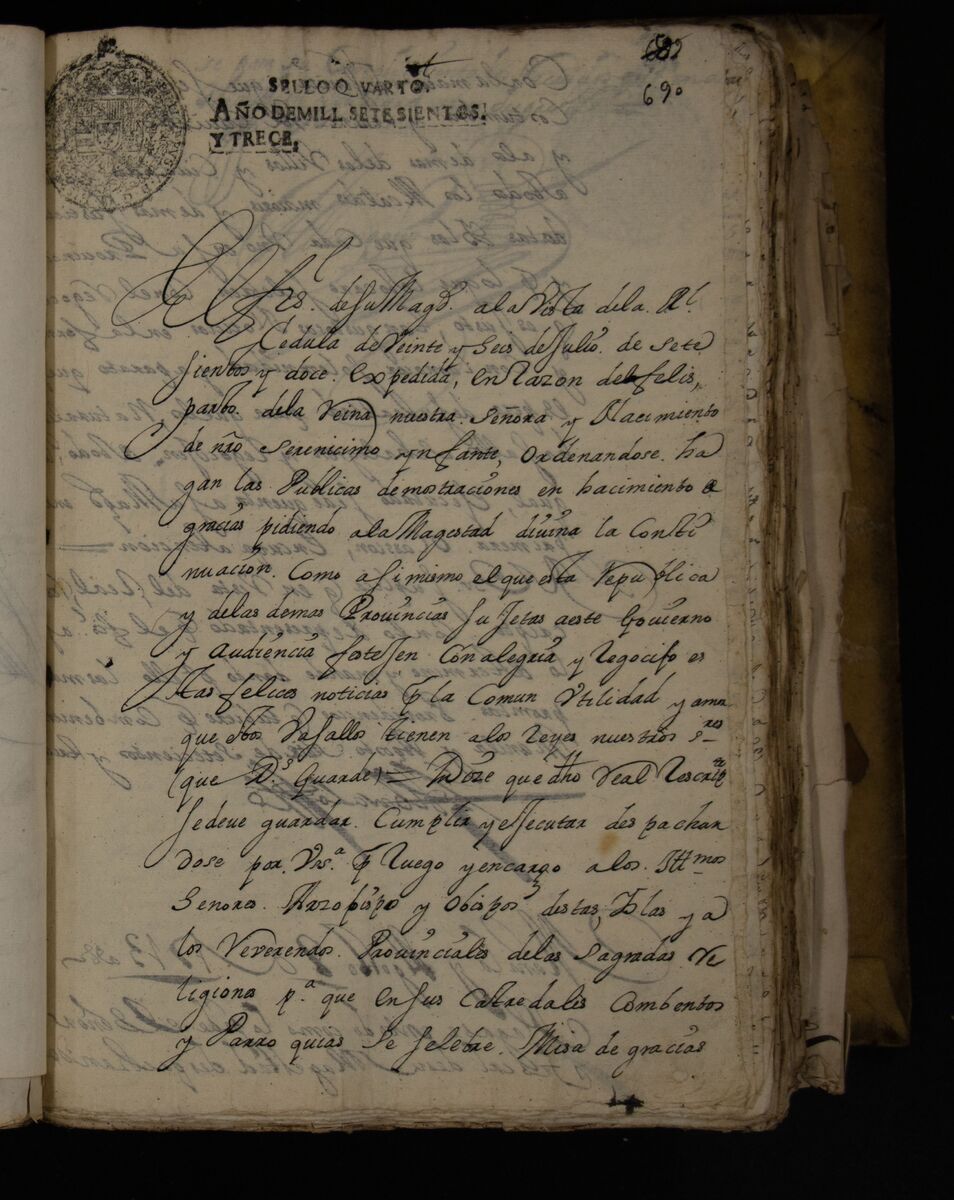 SELLO QVARTO,
AÑO DE MILL SETESIENTOS,
Y TRECE,
690
El fis.l de su Magd. a la Vista de la Rl.
Cedula de Veinte y Seis de Julio de sete
sientos y doce expedida, en Razon del felis,
parto de la Reina nuestra Señora y Nacimiento
de nr̃o Serenicimo ynfante, Ordenandose ha
gan las Publicas demostraciones en hacimiento de
gracias pidiendo a la Magestad diuina la Conti
nuacion. Como asimismo el que esta Republica
y de las demas Prouincias sujetas a este Gouierno
y Audiencia festejen Con alegria y Regocijo es
tas felices noticias p la Comun Utilidad y amor
que estos Vasallos tienen a los Reyes nuestros sres
(que Ds. Guarde) = Dize que dho Real Rescripto
se deue guardar Cumplir y ejecutar despachan
dose por Vs.a p Ruego y encargo a los Illmos
Senores Arzobispo y Obispos destas Yslas y a
los Reverendos Prouinciales de las Sagradas Re
ligiones p.a que en sus Catredales Combentos
y Parroquias se selebre Misa de gracias